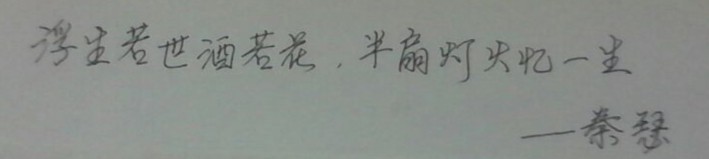 浮生若世酒若花，半扇灯火忆一生
——秦瑟